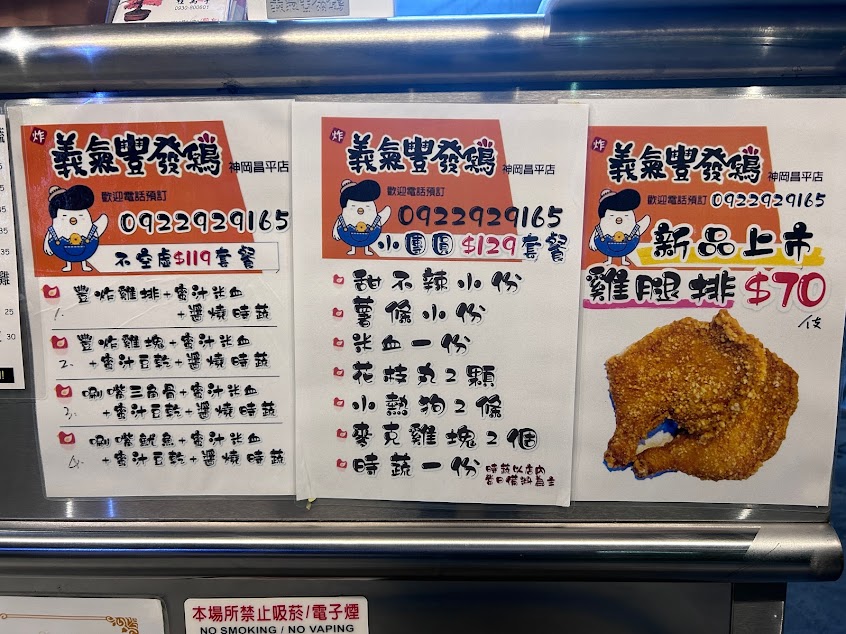 0930-800601
炸
義氣豐發鷄
神岡昌平店
歡迎電話預訂
0922929165
不空虛$119套餐
1. 豐炸雞排+蜜汁米血
+醬燒時蔬
2. 豐炸雞塊+蜜汁米血
+蜜汁豆乾+醬燒時蔬
3. 唰嘴三角骨+蜜汁米血
+蜜汁豆乾+醬燒時蔬
4. 唰嘴魷魚+蜜汁米血
+蜜汁豆乾+醬燒時蔬
炸
義氣豐發鷄
神岡昌平店
歡迎電話預訂
0922929165
小團圓$129套餐
甜不辣小份
薯條小份
米血一份
花枝丸2顆
小熱狗2條
麥克雞塊2個
時蔬一份
時蔬以店內
當日備料為主
炸
義氣豐發鷄
神岡昌平店
歡迎電話預訂
0922929165
新品上市
雞腿排$70
/支
25
30
本場所禁止吸菸/電子煙
NO SMOKING / NO VAPING